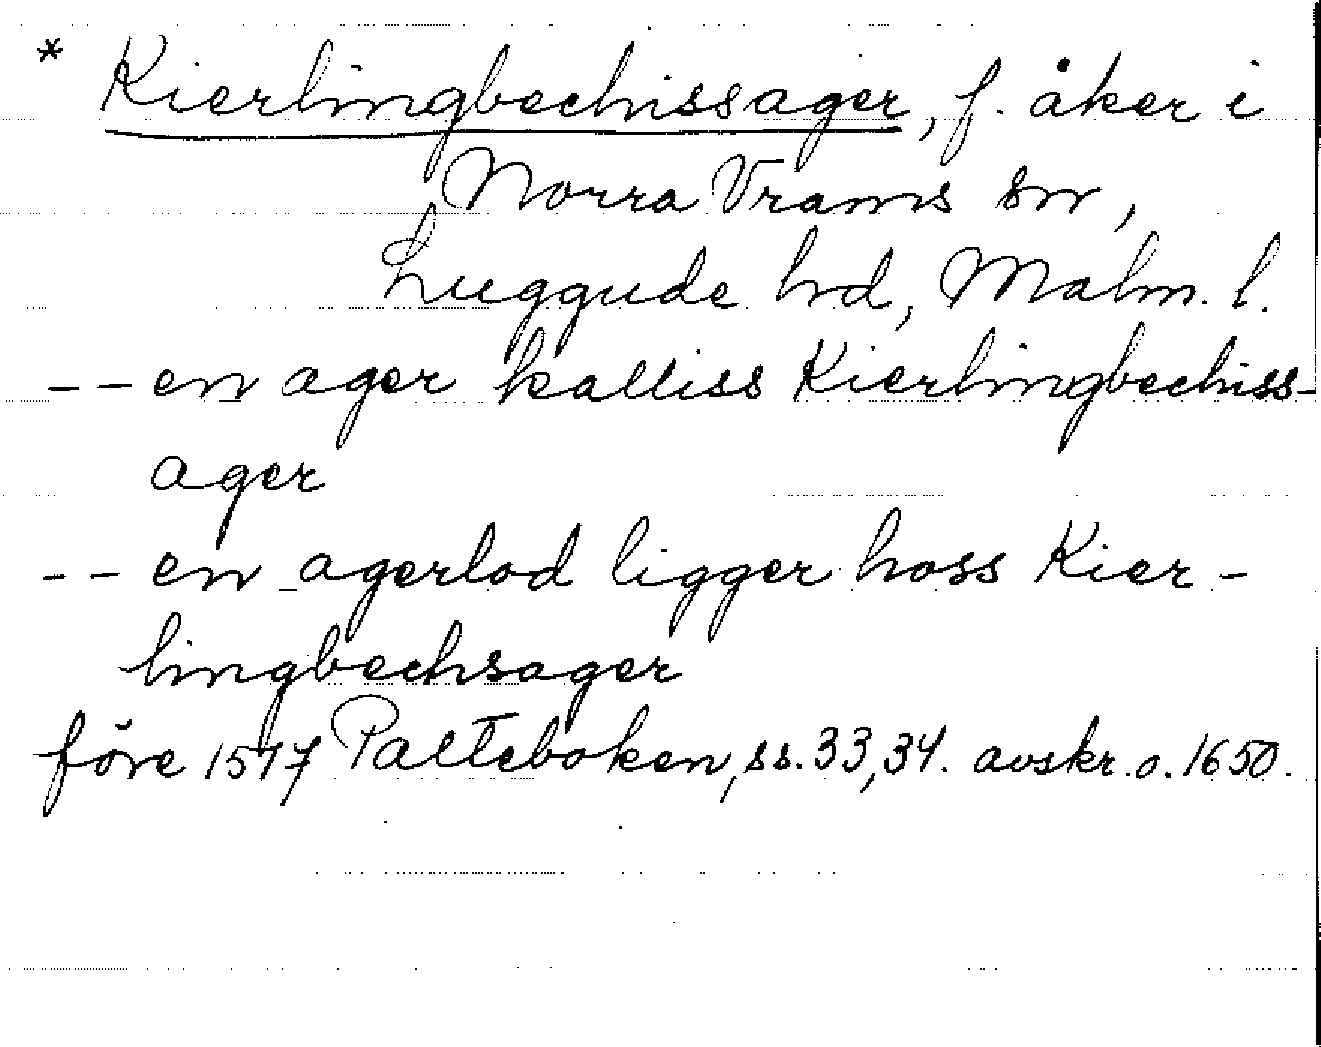 * Kierlingbechissager, f. åker i
Norra Vrams sn,
Luggude hd, Malm. l.
-- en ager kalliss Kierlingbechiss-
ager
-- en agerlod ligger hoss Kier-
lingbechsager
före 1517 Palteboken, ss. 33, 34. avskr. o. 1650.